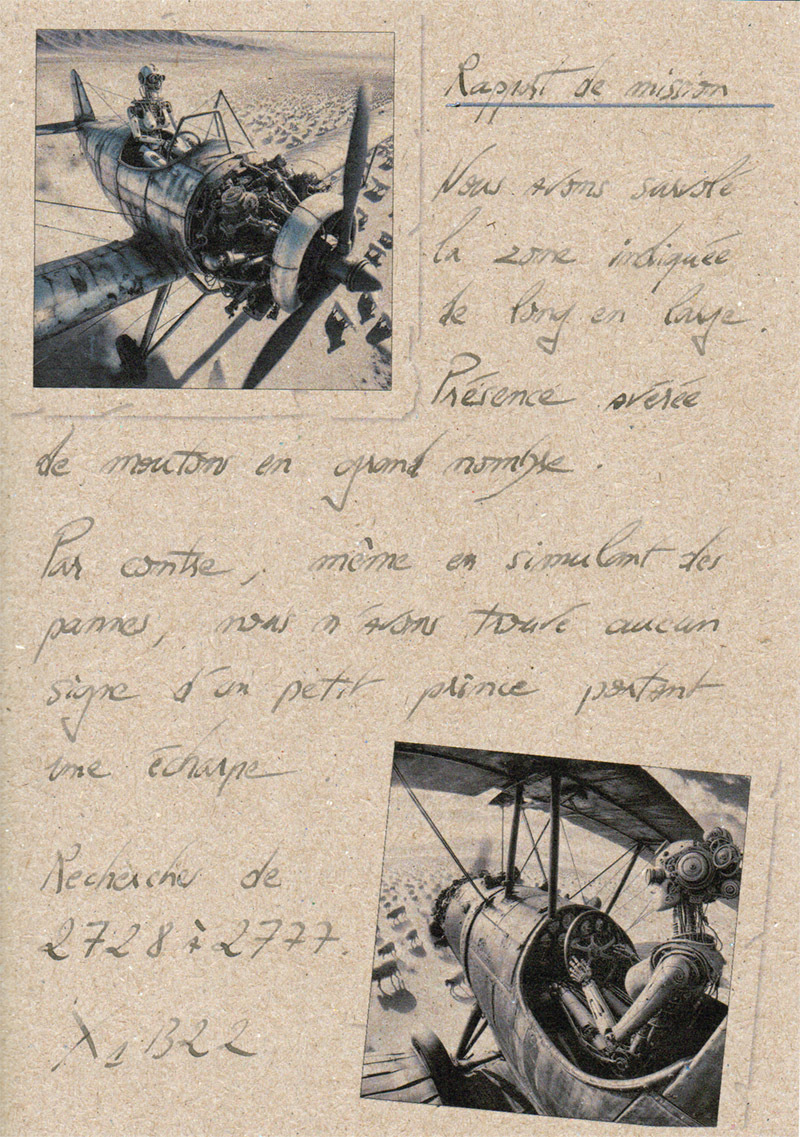 Rapport de mission
Nous avons survolé
la zone indiquée
de long en large.
Présence avérée
de moutons en grand nombre.
Par contre, même en simulant des
pannes, nous n'avons trouvé aucun
signe d'un petit prince portant
une écharpe
Recherches de
2728 à 2777.
X1 1322